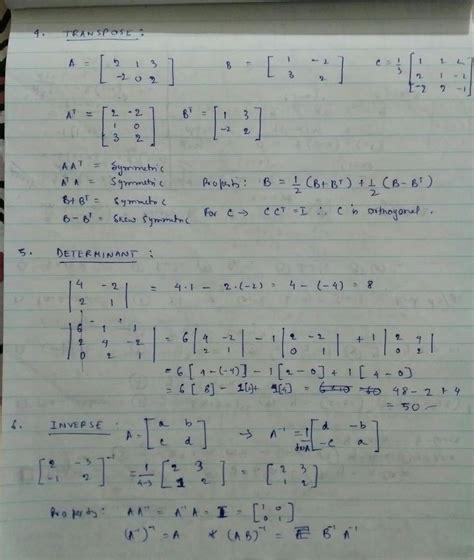 4. TRANSPOSE :
A = [2 1 3; -2 0 2] B = [1 -2; 3 2] C = 1/3 [1 2 2; 2 1 -2; -2 2 -1]
Aᵀ = [2 -2; 1 0; 3 2] Bᵀ = [1 3; -2 2]
AAᵀ = Symmetric
AᵀA = Symmetric Property: B = 1/2 (B+Bᵀ) + 1/2 (B-Bᵀ)
B+Bᵀ = Symmetric
B-Bᵀ = Skew Symmetric For C → CCᵀ = I ∴ C is orthogonal.
5. DETERMINANT :
|4 -2; 2 1| = 4.1 - 2.(-2) = 4 - (-4) = 8
|6 1 1; 2 4 -2; 0 2 1| = 6 |4 -2; 2 1| - 1 |2 -2; 0 1| + 1 |2 4; 0 2|
= 6[4-(-4)] - 1[2-0] + 1[4-0]
= 6[8] - 2 + 48 - 2 + 4
= 50
6. INVERSE : A = [a b; c d] → A⁻¹ = 1/ [d -b; -c a]
[2 -3; -1 2]⁻¹ = 1/4-3 [2 3; 1 2] = [2 3; 1 2]
Property: AA⁻¹ = A⁻¹A = I = [1 0; 0 1]
(A⁻¹)⁻¹ = A * (AB)⁻¹ = B⁻¹ A⁻¹